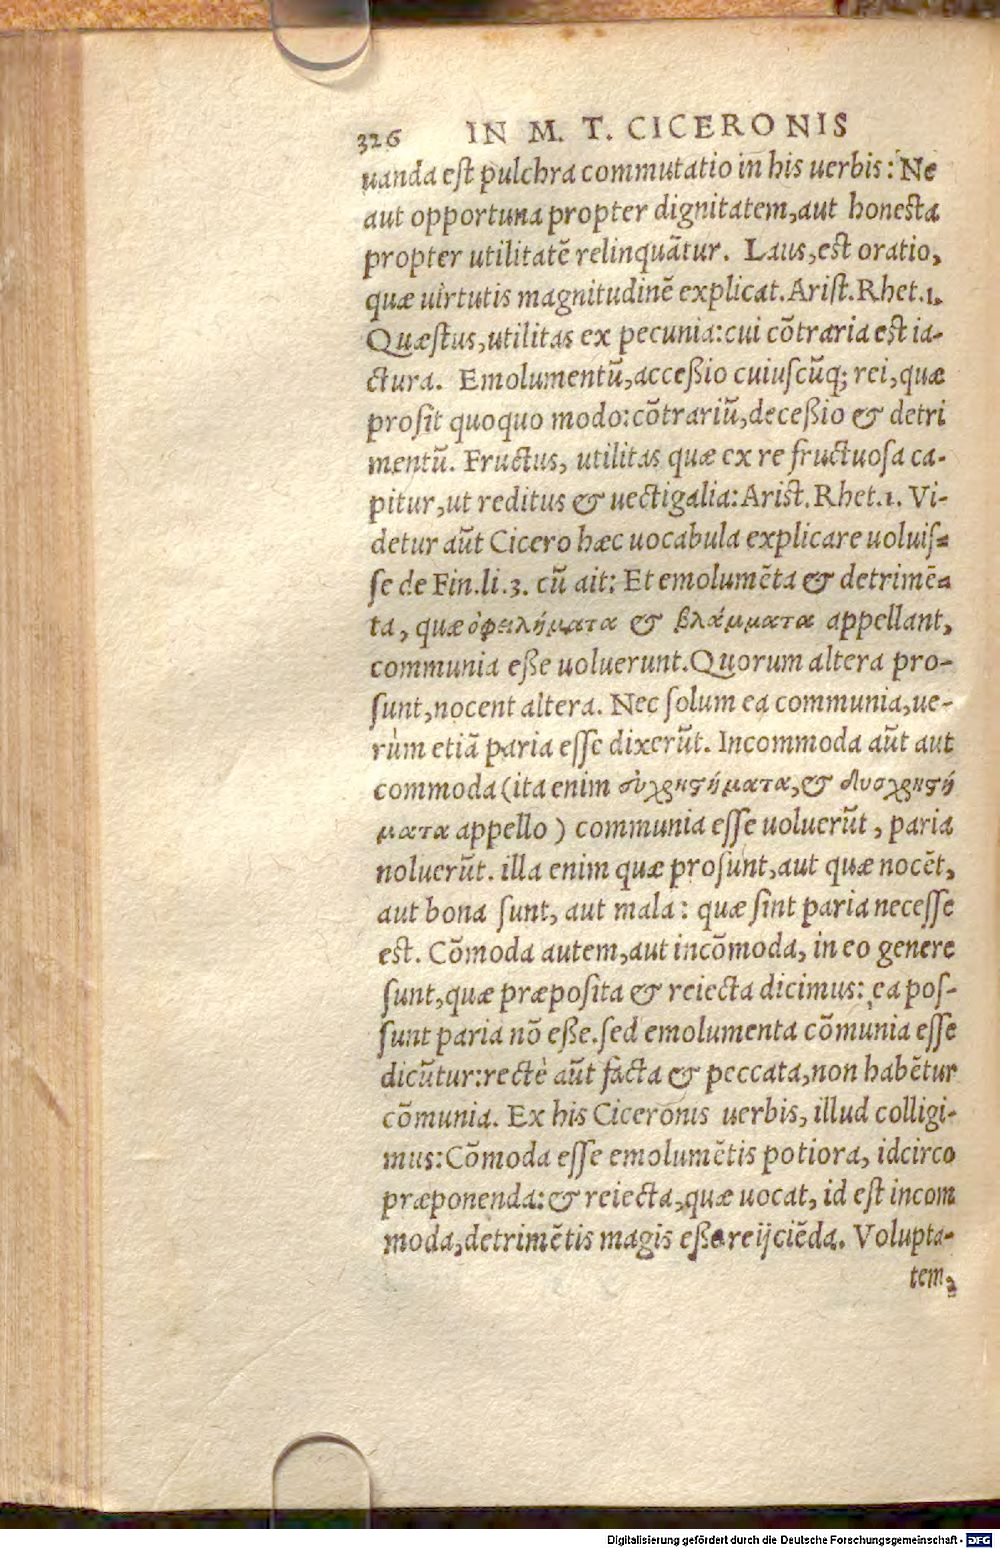 326 IN M. T. CICERONIS
uanda est pulchra commutatio in his uerbis: Ne
aut opportuna propter dignitatem, aut honesta
propter utilitatẽ relinquãtur. Laus, est oratio,
quæ uirtutis magnitudinẽ explicat. Arist. Rhet. 1.
Quæstus, utilitas ex pecunia: cui cõtraria est ia-
ctura. Emolumentũ, acceßio cuiuscũq; rei, quæ
prosit quoquo modo: cõtrariũ, deceßio & detri
mentũ. Fructus, utilitas quæ ex re fructuosa ca-
pitur, ut reditus & uectigalia: Arist. Rhet. 1. Vi-
detur aũt Cicero hæc uocabula explicare uoluis-
se de Fin. li. 3. cũ ait: Et emolumẽta & detrimẽ-
ta, quæ ὀφελήματα & βλάμματα appellant,
communia eße uoluerunt. Quorum altera pro-
sunt, nocent altera. Nec solum ea communia, ue-
rùm etiã paria esse dixerũt. Incommoda aũt aut
commoda (ita enim εὐχρηστήματα, & δυσχρηστή
ματα appello) communia esse uoluerũt, paria
noluerũt. illa enim quæ prosunt, aut quæ nocẽt,
aut bona sunt, aut mala: quæ sint paria necesse
est. Cõmoda autem, aut incõmoda, in eo genere
sunt, quæ præposita & reiecta dicimus: ea pos-
sunt paria nõ eße. sed emolumenta cõmunia esse
dicũtur: rectè aũt facta & peccata, non habẽtur
cõmunia. Ex his Ciceronis uerbis, illud colligi-
mus: Cõmoda esse emolumẽtis potiora, idcirco
præponenda: & reiecta, quæ uocat, id est incom
moda, detrimẽtis magis eße reijciẽda. Volupta-
tem,
Digitalisierung gefördert durch die Deutsche Forschungsgemeinschaft - DFG